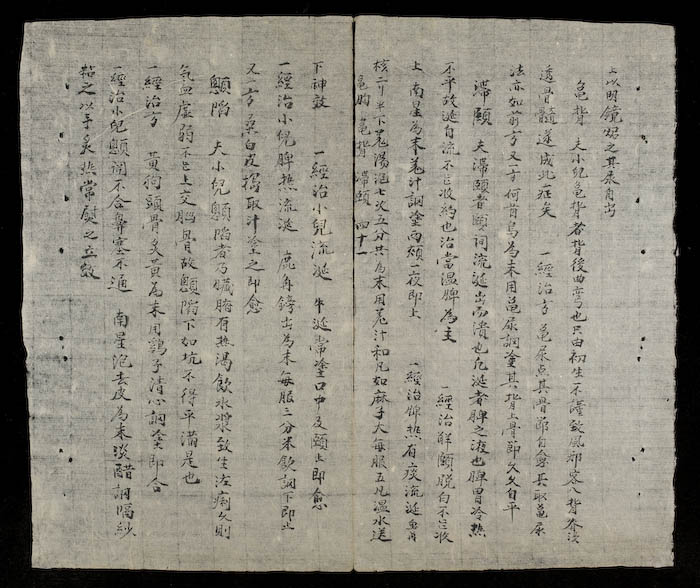 上以明鏡照之其尿自出
龜背　夫小兒龜背者背後曲弯也只由初生不謹致風邪客入背脊淡
透骨髓遂成此症矣　一經治方　龜尿点其骨節自愈其取龜尿
法亦如前方又方何首烏為末用龜尿調塗其背上骨節久久自平
滯頤　夫滯頤者頤間流涎出而漬也凡涎者脾之液也脾胃冷热
不平故涎自流不已收約也治當温脾為主　一經治解頤脱臼不已收
上　南星為末羌汁調塗两頰一夜即上　一經治脾热有痰流涎
核二个半下羌湯泡七次五分共為末用羌汁和凡如麻子大每服五凡温水送
龜胸　龜背　滯頤　四十一
下神效　一經治小兒流涎　牛涎常塗口中及頤上即愈
一經治小兒脾热流涎　鹿角鎊出為末每服三分米飲調下即止
又一方　桑白皮搗取汁塗之即愈
顖陷　夫小兒顖陷者乃臟腑有热渴飲水漿致生泄痢久則
氣血虚弱不已上交腦骨故顖陷下如坑不得平滿是也
一經治方　黄狗頭骨炙黄為末用鷄子清心調塗即合
一經治小兒顖開不合鼻塞不通　南星泡去皮為末淡醋調隔紗
貼之以手炙热常熨之立效